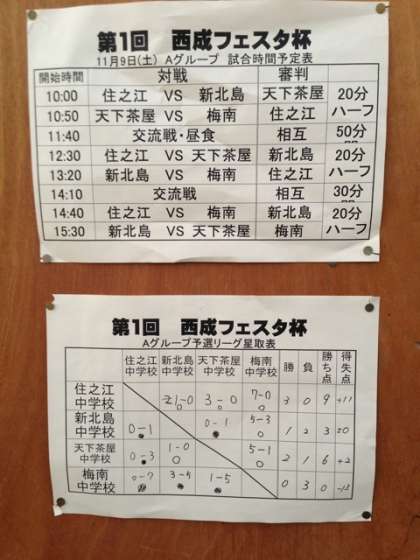 第1回 西成フェスタ杯
11月9日(土) Aグループ 試合時間予定表
開始時間 対戦 審判
10:00 住之江 VS 新北島 天下茶屋 20分
10:50 天下茶屋 VS 梅南 住之江 ハーフ
11:40 交流戦・昼食 相互 50分
12:30 住之江 VS 天下茶屋 新北島 20分
13:20 新北島 VS 梅南 住之江 ハーフ
14:10 交流戦 相互 30分
14:40 住之江 VS 梅南 新北島 20分
15:30 新北島 VS 天下茶屋 梅南 ハーフ
第1回 西成フェスタ杯
Aグループ予選リーグ星取表
住之江中学校 新北島中学校 天下茶屋中学校 梅南中学校 勝 負 勝ち点 得失点
住之江中学校 1-0 3-0 7-0 3 0 9 +11
新北島中学校 0-1 0-1 4-3 1 2 3
天下茶屋中学校 0-3 1-0 5-1 2 1 6 +2
梅南中学校 0-7 3-4 1-5 0 3 0